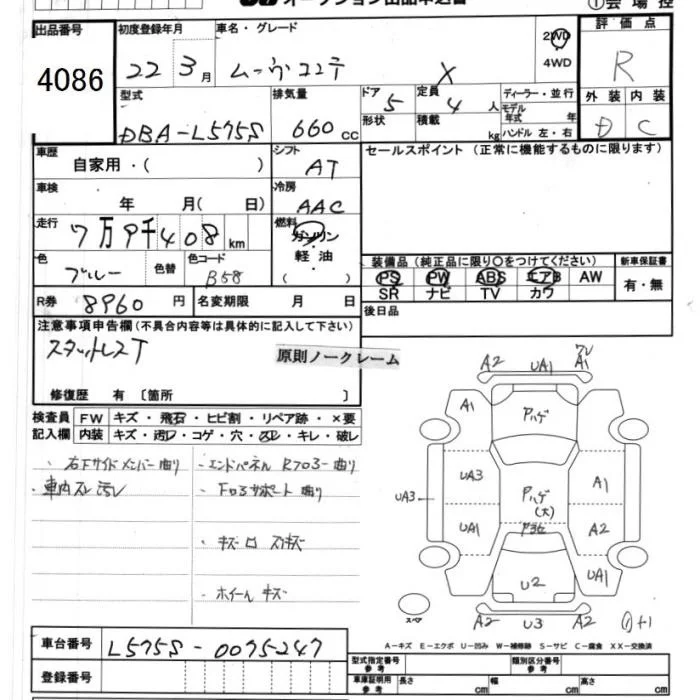 オークション出品申込書
①会場控
出品番号
4086
初度登録年月
22 3月
車名・グレード
ムーヴコンテ X
2WD
4WD
評価点
R
外装 内装
D C
型式
DBA-L575S
排気量
660 cc
ドア 5
形状
定員 4 人
積載 kg
ディーラー・並行
モデル年式 年
ハンドル 左・右
車歴
自家用・( )
シフト
AT
セールスポイント(正常に機能するものに限ります)
車検
年 月( 日)
冷房
AAC
走行
7万9千408km
燃料
ガソリン
・
軽油
・
( )
色
ブルー
色替
色コード
B58
装備品(純正品に限り○をつけてください)
PS PW ABS エアB AW
SR ナビ TV カワ
新車保証書
有・無
R券
8960 円
名変期限 月 日
後日品
注意事項申告欄(不具合内容等は具体的に記入して下さい)
スタットレスT
原則ノークレーム
修復歴 有〔箇所 〕
検査員記入欄
FW キズ・飛石・ヒビ割・リペア跡・×要
内装 キズ・汚レ・コゲ・穴・スレ・キレ・破レ
・右下サイドメンバー曲り
・車内スレ汚レ
・エンドパネル
・キズ
・ホイールキズ
A2 UA1 A1
A1 Pハゲ
UA3 UA3 Pハゲ(大) A1
UA1 A2
U2 UA1
スペア
A2 U3 A2
A-キズ E-エクボ U-凹み W-補修跡 S-サビ C-腐食 XX-交換済
車台番号
L575S-0075247
登録番号
型式指定番号 参考
類別区分番号 参考
車庫証明用 参考
長さ cm 幅 cm 高さ cm